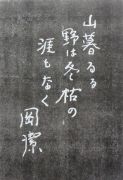 山暮るる
野は冬枯の
涯もなく
岡潔